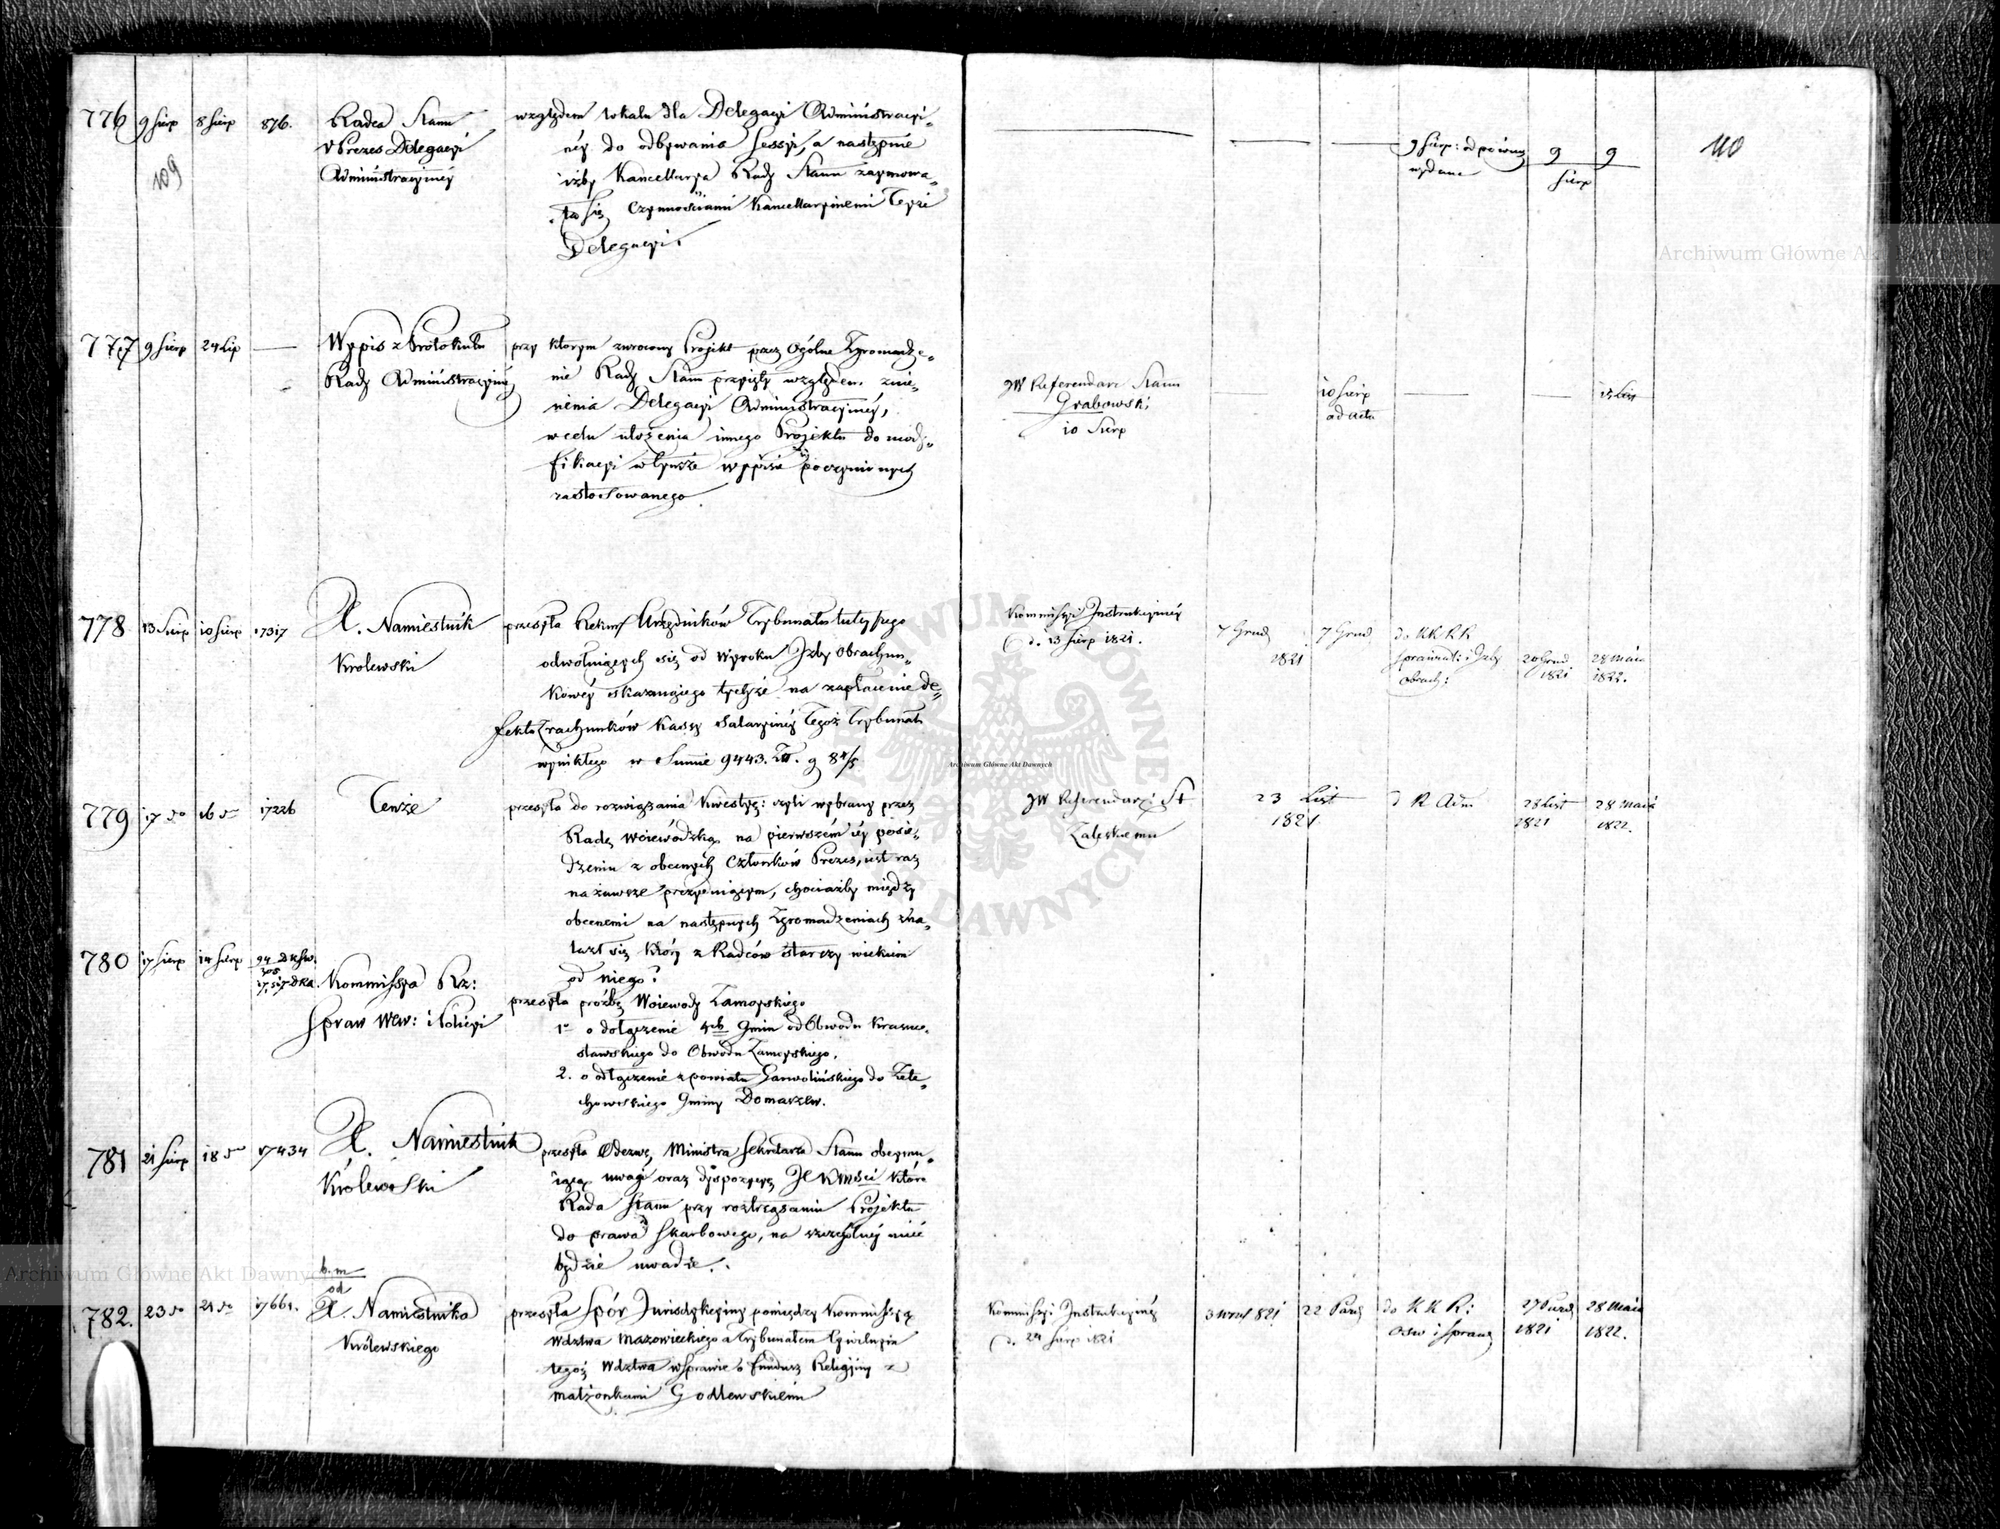 776 9 Sierp 8 Sierp 876. Radca Stanu
VPrezes Delegacyi
Administracyinéy
109
względem lokalu dla Delegacyi Administracyi-
néy do odbywania Sessyi, a następnie
iżby Kancellarya Rady Stanu zaymowa-
ła się czynnościami Kancellaryinemi Teyże
Delegacyi.
9 Sierp: odpowiedz
wydana
9 9
Sierp
110
777 9 Sierp 24 Lip — Wypis z Protokułu
Rady Administracyinéy
przy którym zwrócony Projekt przez Ogólne Zgromadze-
nie Rady Stanu przyięty względem znie-
sienia Delegacyi Administracyinéy,
w celu ułożenia innego Projektu do mody-
fikacyi w tymże wypisie poczynionych
zastosowanego.
JW Referendarz Stanu
Grabowski
10 Sierp
10 Sierp
ad acta
778 13 Sierp 10 Sierp 17317 X. Namiestnik
Królewski
przesyła Rekurs Urzędników Trybunału tuteyszego
odwołuiących się od Wyroku Izby Obrachun-
kowéy skazuiącego tychże na zapłacenie de-
fektu z rachunków Kassy Salaryinéy Tegoż Trybunału
wynikłego w Summie 9443. Zł. g 8 4/5
Kommissyi Instrukcyinéy
d. 13 Sierp 1821.
7 Grud
1821
7 Grud
do KRRR
Sprawied: i Izby
Obrach:
20 Grud
1821
28 Maia
1822.
779 17 do 16 do 17226 Tenże
przesyła do rozwiązania kwestyę: czyli wybrany przez
Radę Woiewódzką na pierwszém iéy posie-
dzeniu z obecnych Członków Prezes, iest raz
na zawsze prezyduiącym, chociażby między
obecnemi na następnych Zgromadzeniach zna-
lazł się który z Radców starszy wiekiem
od niego?
JW Referendarzi St
Zaleskiemu
23 List
1821
d R Adm
28 List
1821
28 Maia
1822.
780 17 Sierp 14 Sierp
Kommissya Rz:
Spraw Wew: i Policyi
przesyła prośbę Woiewody Zamoyskiego
1o o dołączenie 4ch Gmin od Obwodu Krasno-
stawskiego do Obwodu Zamoyskiego.
2. o odłączenie z powiatu Garwolińskiego do Żele-
chowskiego Gminy Domaszew.
781 21 Sierp 18 do 17434 X. Namiestnik
Królewski
przesyła Odezwę, Ministra Sekretarza Stanu obeymu-
iącą uwagi oraz dyspozycyę JC KMości które
Rada Stanu przy roztrząsaniu Projektu
do prawa Skarbowego, na szczególnéy mieć
będzie uwadze.
b. m
od
782. 23 do 21 do 17661. X. Namiestnika
Królewskiego
przesyła Spór Jurisdykcyiny pomiędzy Kommissyą
Wdztwa Mazowieckiego a Trybunałem Cywilnym
tegoż Wdztwa w Sprawie o fundusz Religyiny z
małżonkami Godlewskiemi
Kommissyi Instrukcyinéy
d. 24 Sierp 1821
3 Wrześ 821
22 Paźd
do KKR:
Osw i Spraw
27 Paźd
1821
28 Maia
1822.
Archiwum Główne Akt Dawnych
Archiwum Główne Akt Dawnych
Archiwum Główne Akt Dawnych